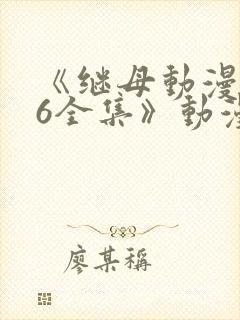 《继母動漫
6全集》動漫
廖某稱